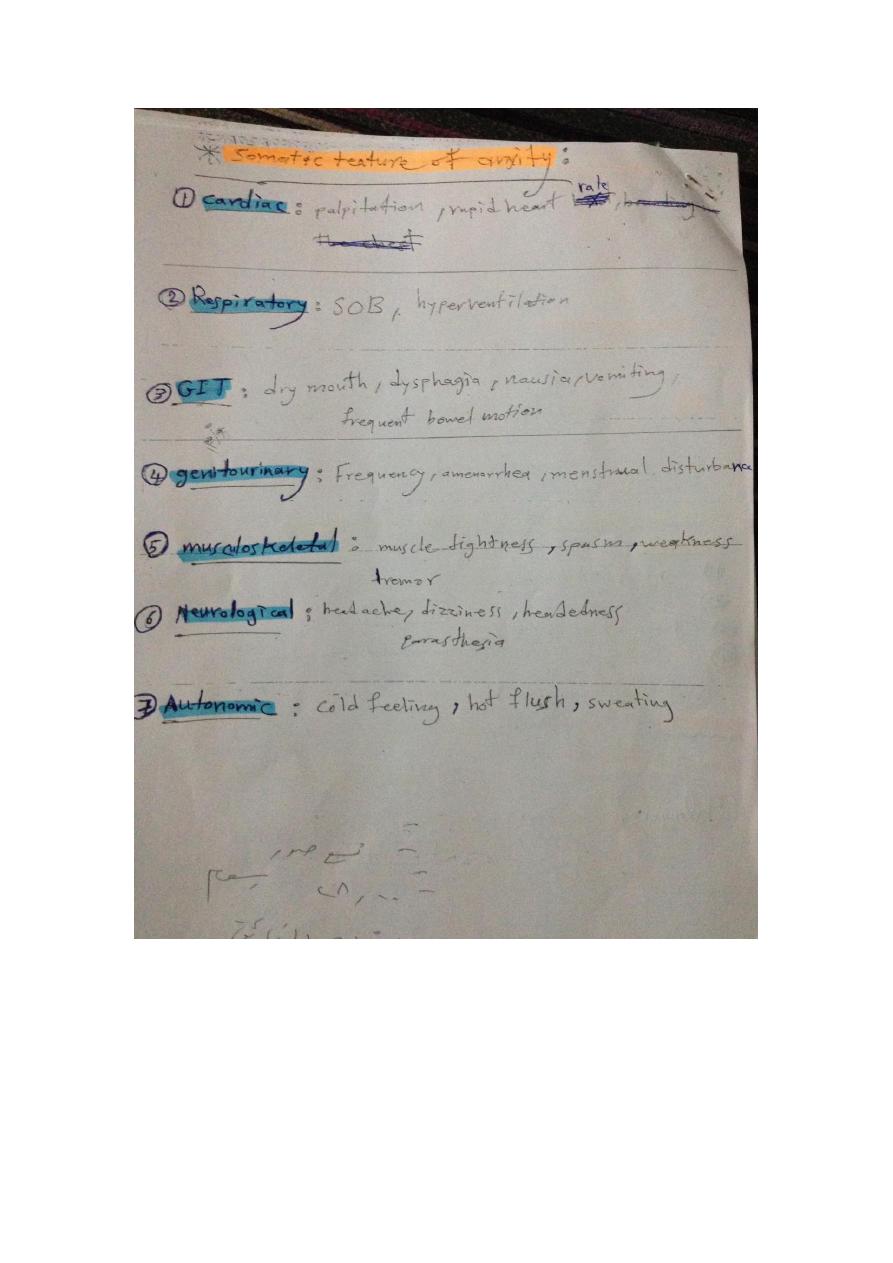 * Somatic feature of anxity :
① Cardiac : palpitation , rapid heart rate ,
② Respiratory : SOB , hyperventilation
③ GIT : dry mouth , dysphagia , nausia , vomiting ,
frequent bowel motion
④ genitourinary : Frequency , amenorrhea , menstrual disturbance
⑤ musculoskeletal : muscle tightness , spasm , weakness
tremor
⑥ Neurological : headache , dizziness , headedness
parasthesia
⑦ Autonomic : cold feeling , hot flush , sweating